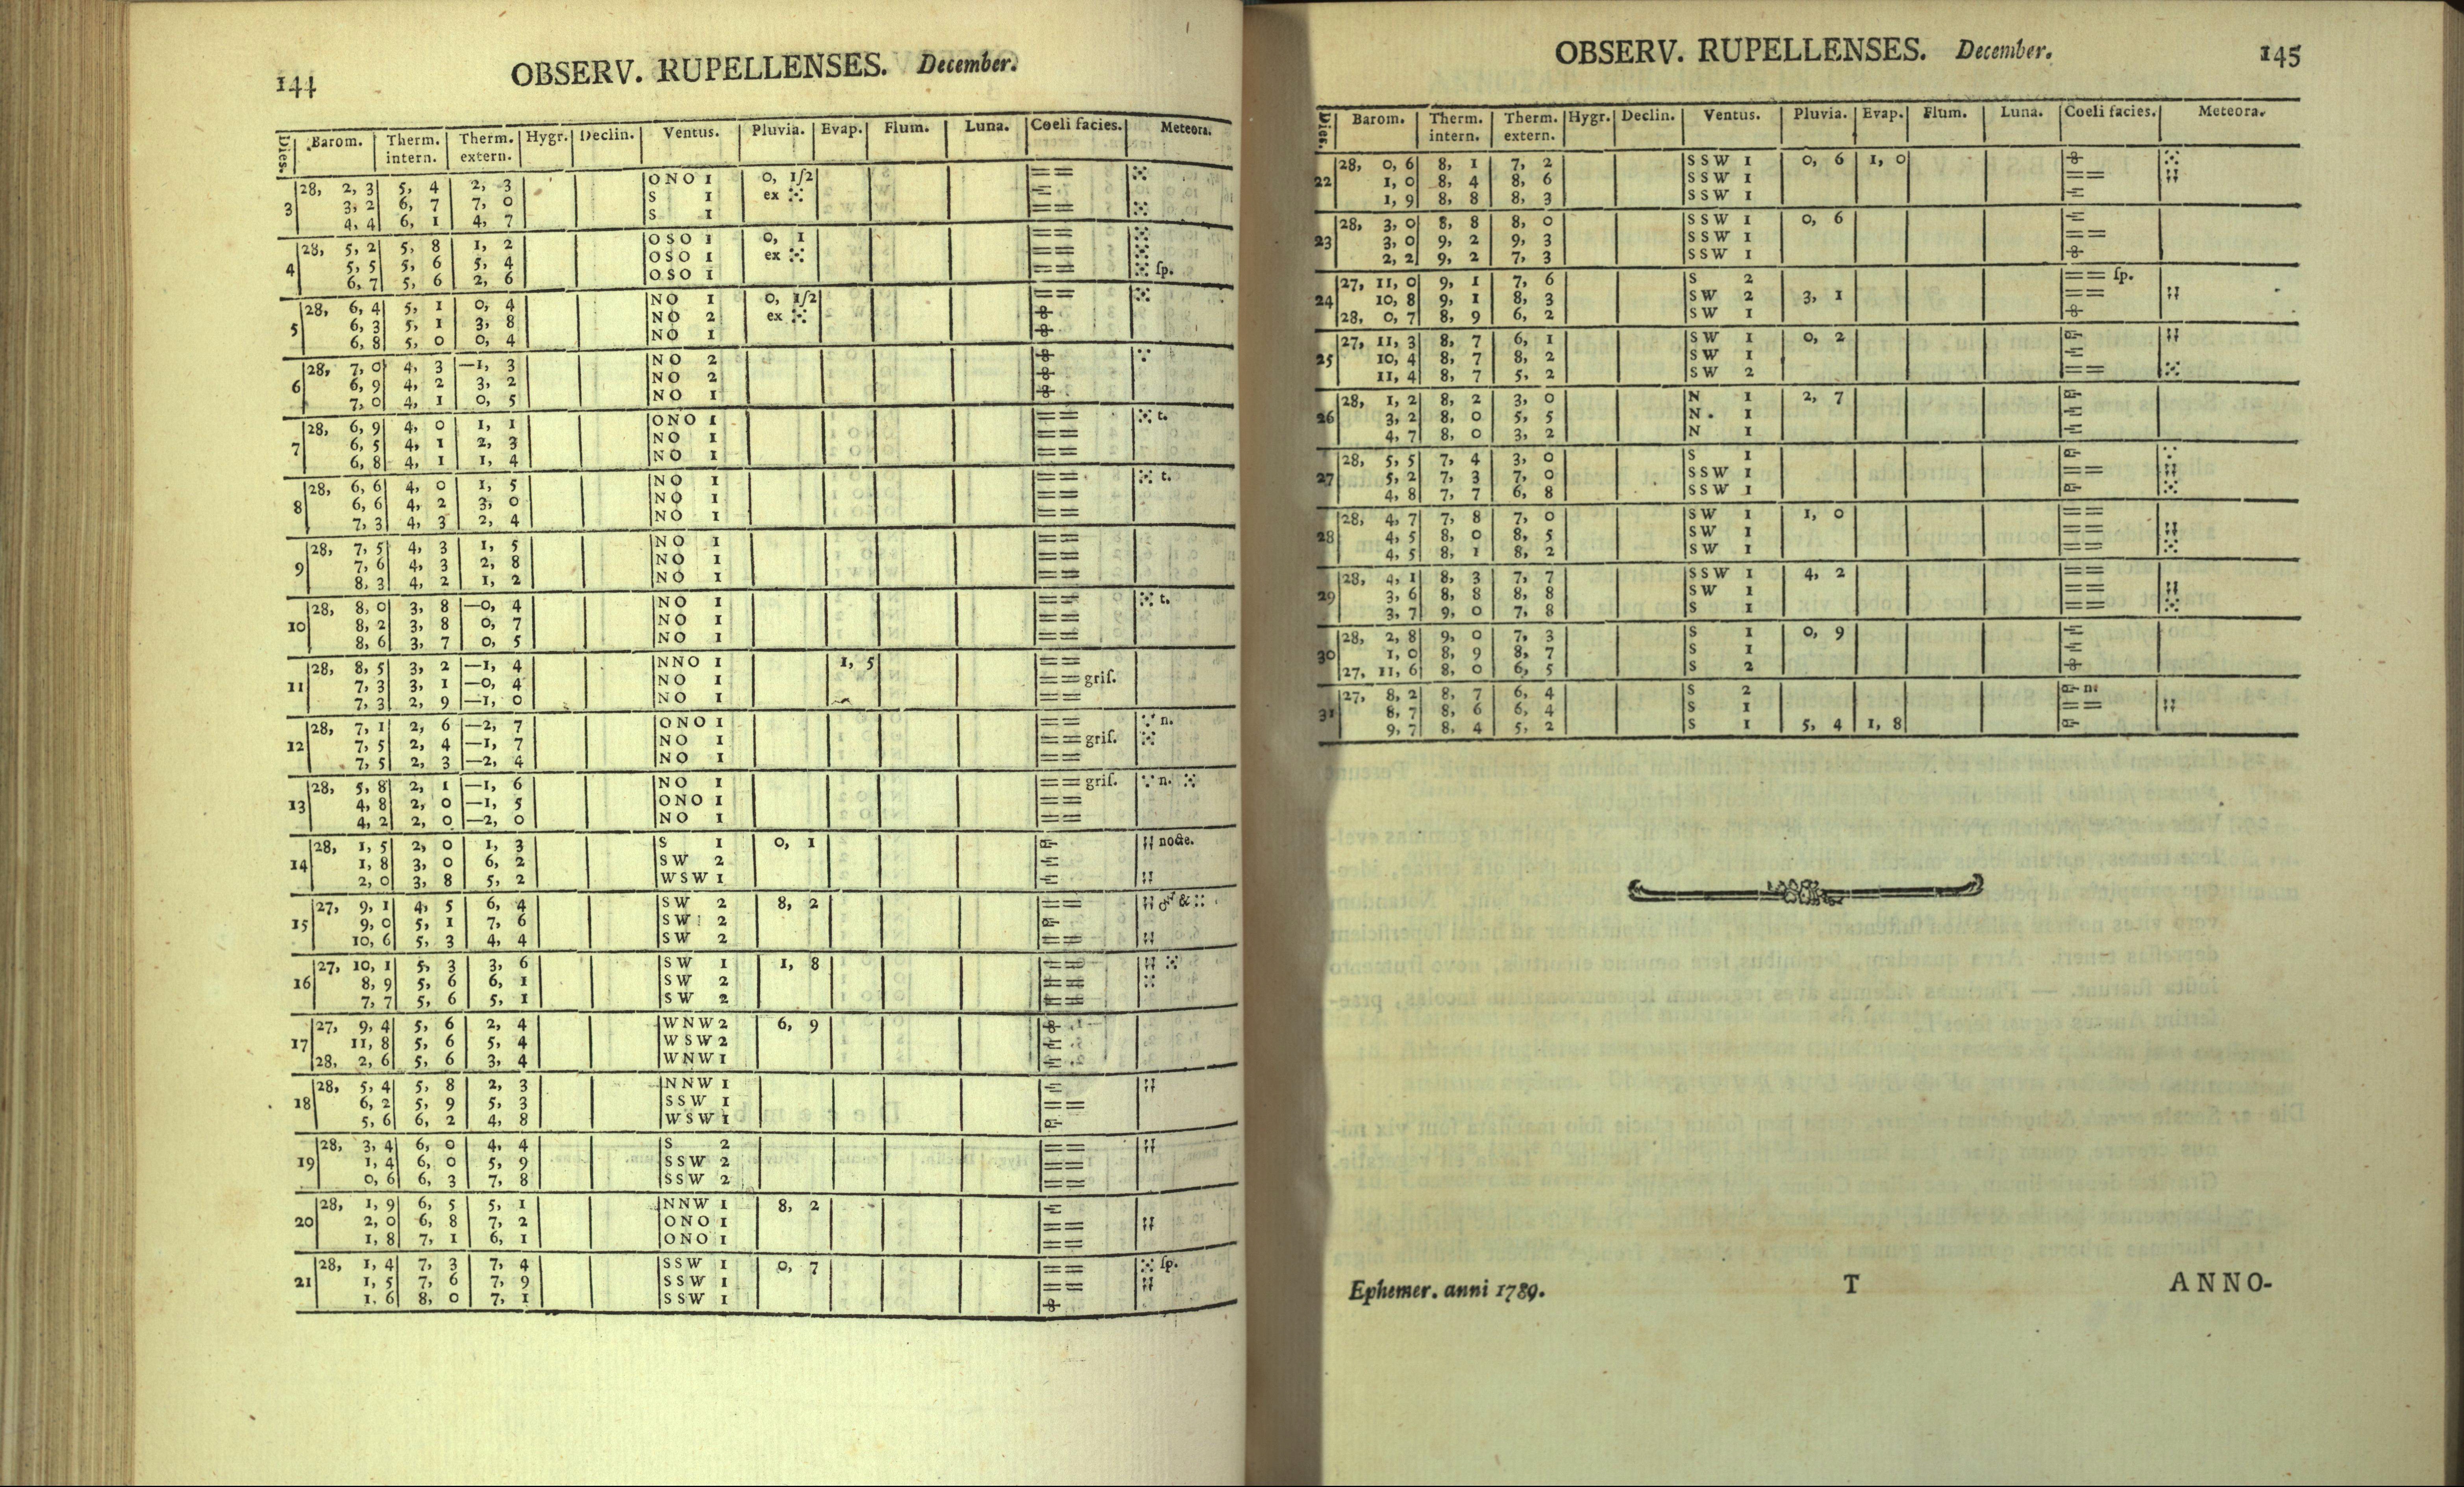 144
OBSERV. RUPELLENSES. December.
Dies. Barom. Therm. intern. Therm. extern. Hygr. Declin. Ventus. Pluvia. Evap. Flum. Luna. Coeli facies. Meteora.
28, 2, 3 5, 4 2, 3 ONO 1 0, 1/2
3 3, 2 6, 7 7, 0 S 1 ex
4, 4 6, 1 4, 7 S 1
28, 5, 2 5, 8 1, 2 OSO 1 0, 1
4 5, 5 5, 6 5, 4 OSO 1 ex
6, 7 5, 6 2, 6 OSO 1 ſp.
28, 6, 4 5, 1 0, 4 NO 1 0, 1/2
5 6, 3 5, 1 3, 8 NO 2 ex
6, 8 5, 0 0, 4 NO 1
28, 7, 0 4, 3 —1, 3 NO 2
6 6, 9 4, 2 3, 2 NO 2
7, 0 4, 1 0, 5 NO 1
28, 6, 9 4, 0 1, 1 ONO 1 t.
7 6, 5 4, 1 2, 3 NO 1
6, 8 4, 1 1, 4 NO 1
28, 6, 6 4, 0 1, 5 NO 1 t.
8 6, 6 4, 2 3, 0 NO 1
7, 3 4, 3 2, 4 NO 1
28, 7, 5 4, 3 1, 5 NO 1
9 7, 6 4, 3 2, 8 NO 1
8, 3 4, 2 1, 2 NO 1
28, 8, 0 3, 8 —0, 4 NO 1 t.
10 8, 2 3, 8 0, 7 NO 1
8, 6 3, 7 0, 5 NO 1
28, 8, 5 3, 2 —1, 4 NNO 1 1, 5
11 7, 3 3, 1 —0, 4 NO 1 griſ.
7, 3 2, 9 —1, 0 NO 1
28, 7, 1 2, 6 —2, 7 ONO 1 n.
12 7, 5 2, 4 —1, 7 NO 1 griſ.
7, 5 2, 3 —2, 4 NO 1
28, 5, 8 2, 1 —1, 6 NO 1 griſ. n.
13 4, 8 2, 0 —1, 5 ONO 1
4, 2 2, 0 —2, 0 NO 1
28, 1, 5 2, 0 1, 3 S 1 0, 1 nocte.
14 1, 8 3, 0 6, 2 SW 2
2, 0 3, 8 5, 2 WSW 1
27, 9, 1 4, 5 6, 4 SW 2 8, 2 &
15 9, 0 5, 1 7, 6 SW 2
10, 6 5, 3 4, 4 SW 2
27, 10, 1 5, 3 3, 6 SW 1 1, 8
16 8, 9 5, 6 6, 1 SW 2
7, 7 5, 6 5, 1 SW 2
27, 9, 4 5, 6 2, 4 WNW 2 6, 9
17 11, 8 5, 6 5, 4 WSW 2
28, 2, 6 5, 6 3, 4 WNW 1
28, 5, 4 5, 8 2, 3 NNW 1
18 6, 2 5, 9 5, 3 SSW 1
5, 6 6, 2 4, 8 WSW 1
28, 3, 4 6, 0 4, 4 S 2
19 1, 4 6, 0 5, 9 SSW 2
0, 6 6, 3 7, 8 SSW 2
28, 1, 9 6, 5 5, 1 NNW 1 8, 2
20 2, 0 6, 8 7, 2 ONO 1
1, 8 7, 1 6, 1 ONO 1
28, 1, 4 7, 3 7, 4 SSW 1 0, 7 ſp.
21 1, 5 7, 6 7, 9 SSW 1
1, 6 8, 0 7, 1 SSW 1
OBSERV. RUPELLENSES. December.
145
Dies. Barom. Therm. intern. Therm. extern. Hygr. Declin. Ventus. Pluvia. Evap. Flum. Luna. Coeli facies. Meteora.
28, 0, 6 8, 1 7, 2 SSW 1 0, 6 1, 0
22 1, 0 8, 4 8, 6 SSW 1
1, 9 8, 8 8, 3 SSW 1
28, 3, 0 8, 8 8, 0 SSW 1 0, 6
23 3, 0 9, 2 9, 3 SSW 1
2, 2 9, 2 7, 3 SSW 1
27, 11, 0 9, 1 7, 6 S 2 ſp.
24 10, 8 9, 1 8, 3 SW 2 3, 1
28, 0, 7 8, 9 6, 2 SW 1
27, 11, 3 8, 7 6, 1 SW 1 0, 2
25 10, 4 8, 7 8, 2 SW 1
11, 4 8, 7 5, 2 SW 2
28, 1, 2 8, 2 3, 0 N 1 2, 7
26 3, 2 8, 0 5, 5 N. 1
4, 7 8, 0 3, 2 N 1
28, 5, 5 7, 4 3, 0 S 1
27 5, 2 7, 3 7, 0 SSW 1
4, 8 7, 7 6, 8 SSW 1
28, 4, 7 7, 8 7, 0 SW 1 1, 0
28 4, 5 8, 0 8, 5 SW 1
4, 5 8, 1 8, 2 SW 1
28, 4, 1 8, 3 7, 7 SSW 1 4, 2
29 3, 6 8, 8 8, 8 SW 1
3, 7 9, 0 7, 8 S 1
28, 2, 8 9, 0 7, 3 S 1 0, 9
30 1, 0 8, 9 8, 7 S 1
27, 11, 6 8, 0 6, 5 S 2
27, 8, 2 8, 7 6, 4 S 2 n.
31 8, 7 8, 6 6, 4 S 1
9, 7 8, 4 5, 2 S 1 5, 4 1, 8
Ephemer. anni 1789. T ANNO-